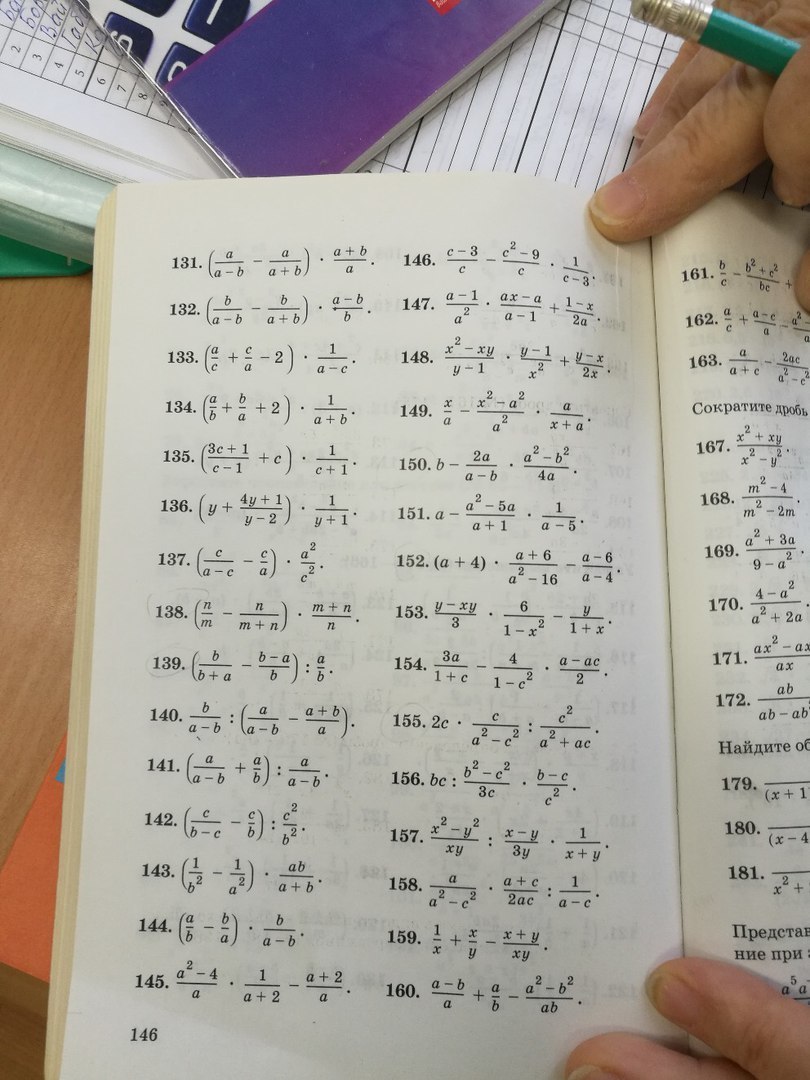 131. (a/(a−b) − a/(a+b)) · (a+b)/a.
132. (b/(a−b) − b/(a+b)) · (a−b)/b.
133. (a/c + c/a − 2) · 1/(a−c).
134. (a/b + b/a + 2) · 1/(a+b).
135. ((3c+1)/(c−1) + c) · 1/(c+1).
136. (y + (4y+1)/(y−2)) · 1/(y+1).
137. (c/(a−c) − c/a) · a²/c².
138. (n/m − n/(m+n)) · (m+n)/n.
139. (b/(b+a) − (b−a)/b) : a/b.
140. b/(a−b) : (a/(a−b) − (a+b)/a).
141. (a/(a−b) + a/b) : a/(a−b).
142. (c/(b−c) − c/b) : c²/b².
143. (1/b² − 1/a²) · ab/(a+b).
144. (a/b − b/a) · b/(a−b).
145. (a²−4)/a · 1/(a+2) − (a+2)/a.
146
146. (c−3)/c − (c²−9)/c · 1/(c−3).
147. (a−1)/a² · (ax−a)/(a−1) + (1−x)/2a.
148. (x²−xy)/(y−1) · (y−1)/x² + (y−x)/2x.
149. x/a − (x²−a²)/a² · a/(x+a).
150. b − 2a/(a−b) · (a²−b²)/4a.
151. a − (a²−5a)/(a+1) · 1/(a−5).
152. (a+4) · (a+6)/(a²−16) − (a−6)/(a−4).
153. (y−xy)/3 · 6/(1−x²) − y/(1+x).
154. 3a/(1+c) − 4/(1−c²) · (a−ac)/2.
155. 2c · c/(a²−c²) : c²/(a²+ac).
156. bc : (b²−c²)/3c · (b−c)/c².
157. (x²−y²)/xy : (x−y)/3y · 1/(x+y).
158. a/(a²−c²) · (a+c)/2ac : 1/(a−c).
159. 1/x + x/y − (x+y)/xy.
160. (a−b)/a + a/b − (a²−b²)/ab.
161. b/c − (b²+c²)/bc +
162. a/c + (a−c)/a −
163. a/(a+c) − 2ac/(a²−c²)
Сократите дробь
167. (x²+xy)/(x²−y²).
168. (m²−4)/(m²−2m)
169. (a²+3a)/(9−a²).
170. (4−a²)/(a²+2a)
171. (ax²−ax)/ax
172. ab/(ab−ab
Найдите
179. (x+1
180. (x−4
181. x²+
ние при